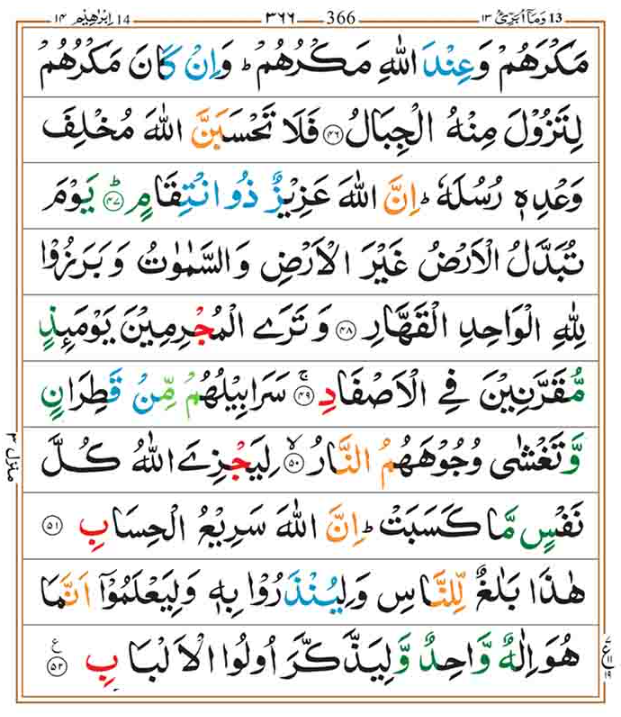 ابرٰهیم 14 ۱۴ ۳۶۶ 366 وما ابرئ 13 ۱۳
مَكْرَهُمْ وَعِنْدَ اللّٰهِ مَكْرُهُمْ ؕ وَاِنْ كَانَ مَكْرُهُمْ
لِتَزُوْلَ مِنْهُ الْجِبَالُ ﴿۴۶﴾ فَلَا تَحْسَبَنَّ اللّٰهَ مُخْلِفَ
وَعْدِهٖ رُسُلَهٗ ؕ اِنَّ اللّٰهَ عَزِيْزٌ ذُو انْتِقَامٍ ﴿۴۷﴾ؕ يَوْمَ
تُبَدَّلُ الْاَرْضُ غَيْرَ الْاَرْضِ وَالسَّمٰوٰتُ وَبَرَزُوْا
لِلّٰهِ الْوَاحِدِ الْقَهَّارِ ﴿۴۸﴾ وَتَرَى الْمُجْرِمِيْنَ يَوْمَئِذٍ
مُّقَرَّنِيْنَ فِي الْاَصْفَادِ ﴿۴۹﴾ۚ سَرَابِيْلُهُمْ مِّنْ قَطِرَانٍ
وَّتَغْشٰى وُجُوْهَهُمُ النَّارُ ﴿۵۰﴾ۙ لِيَجْزِيَ اللّٰهُ كُلَّ
نَفْسٍ مَّا كَسَبَتْ ؕ اِنَّ اللّٰهَ سَرِيْعُ الْحِسَابِ ﴿۵۱﴾
هٰذَا بَلٰغٌ لِّلنَّاسِ وَلِيُنْذَرُوْا بِهٖ وَلِيَعْلَمُوْۤا اَنَّمَا
هُوَ اِلٰهٌ وَّاحِدٌ وَّلِيَذَّكَّرَ اُولُوا الْاَلْبَابِ ﴿۵۲﴾ ع
منزل ۳